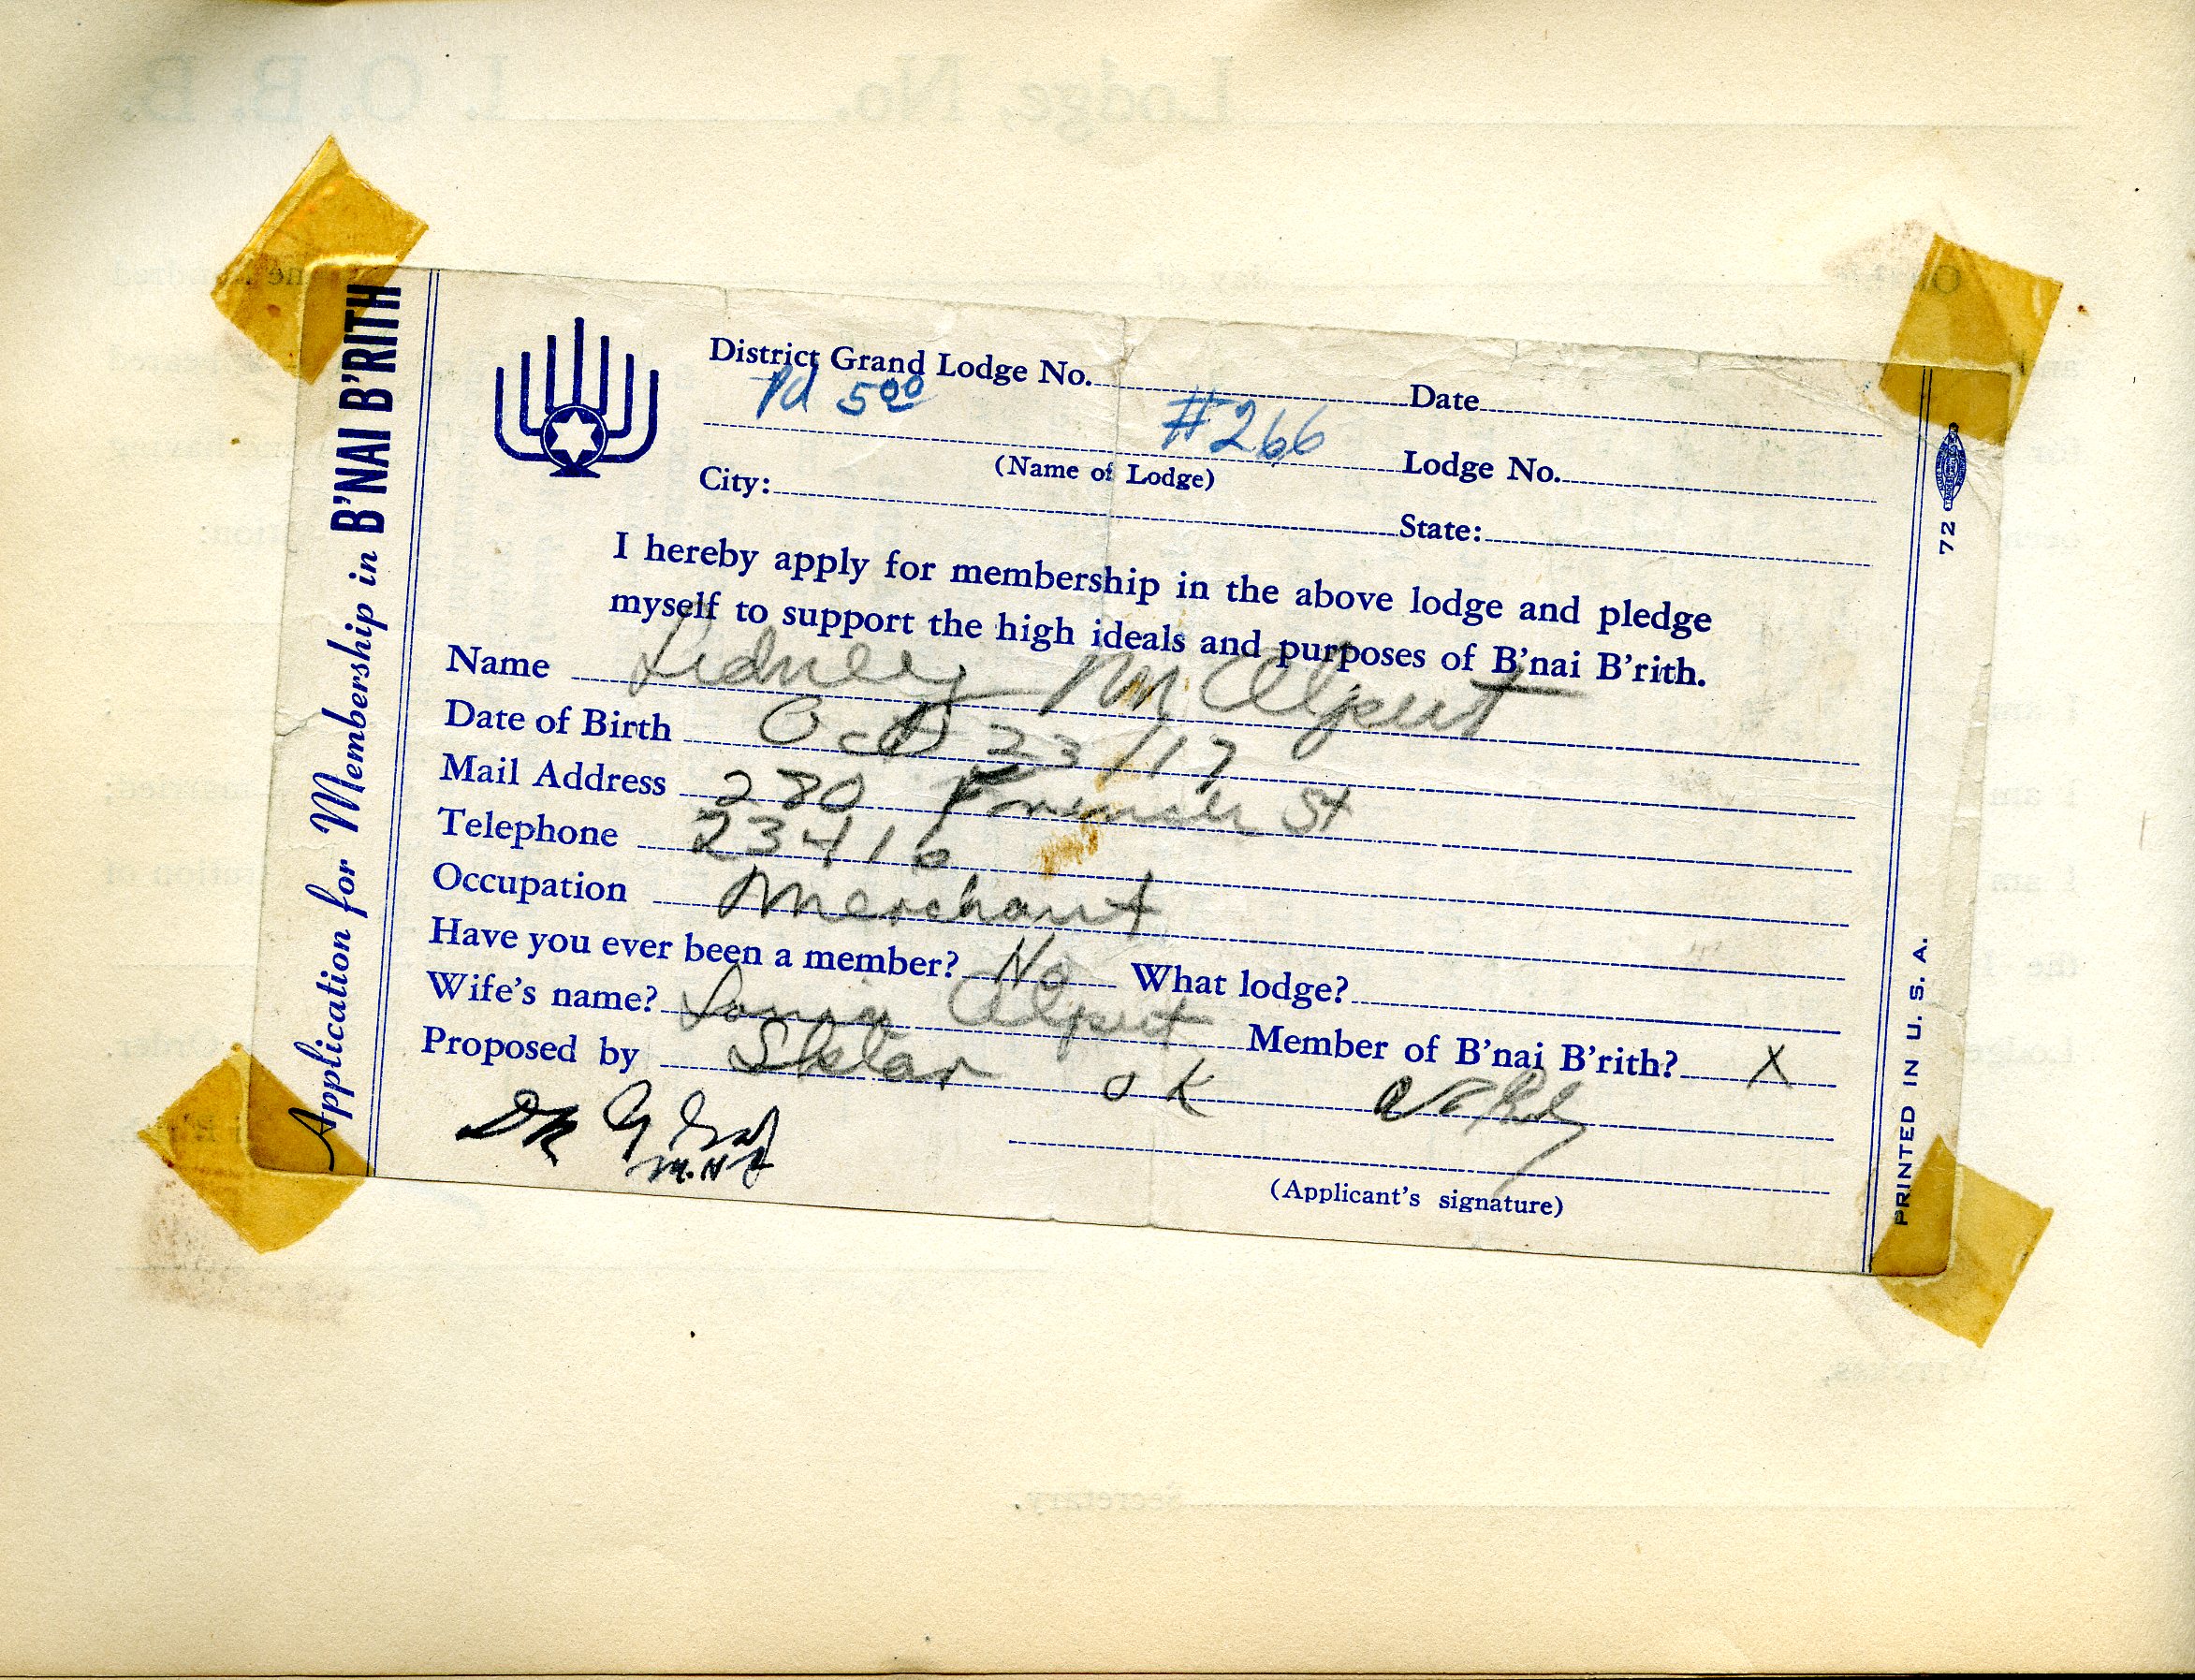 Application for Membership in B'NAI B'RITH
District Grand Lodge No. Date
Pd 5.00 #266 Lodge No.
(Name of Lodge)
City: State:
I hereby apply for membership in the above lodge and pledge
myself to support the high ideals and purposes of B'nai B'rith.
Name Sidney M Alpert
Date of Birth Oct 23/17
Mail Address 280 St
Telephone 23416
Occupation Merchant
Have you ever been a member? No What lodge?
Wife's name? Sonia Alpert Member of B'nai B'rith? X
Proposed by Sklar OK
(Applicant's signature)
72
PRINTED IN U. S. A.
Lodge, No. I. O. B. B.
day of
Secretary.